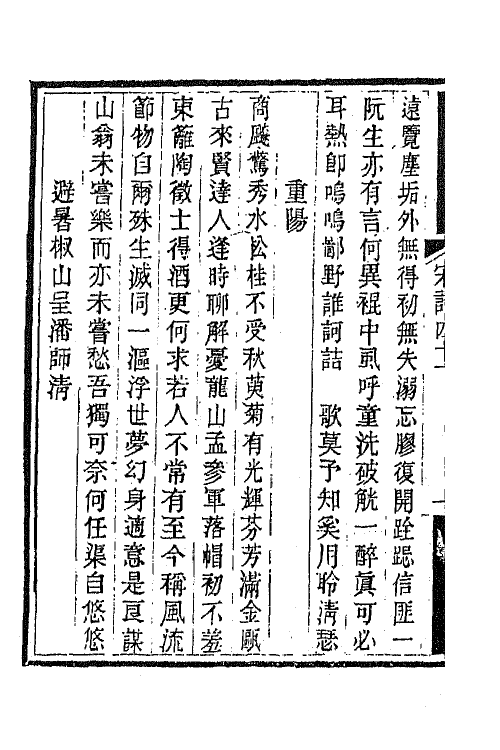 遠覽塵垢外無得初無失溺忘膠復開跧跽信匪一
阮生亦有言何異裩中虱呼童洗破觥一醉眞可必
耳熱卽嗚嗚鄙野誰訶詰　歌莫予知奚用聆淸瑟
重陽
商飈驚秀水松桂不受秋萸菊有光輝芬芳滿金甌
古來賢達人逢時聊解憂龍山孟參軍落帽初不羞
東籬陶徵士得酒更何求若人不常有至今稱風流
節物自爾殊生滅同一漚浮世夢幻身適意是良謀
山翁未嘗樂而亦未嘗愁吾獨可奈何任渠自悠悠
避暑椒山呈潘師淸